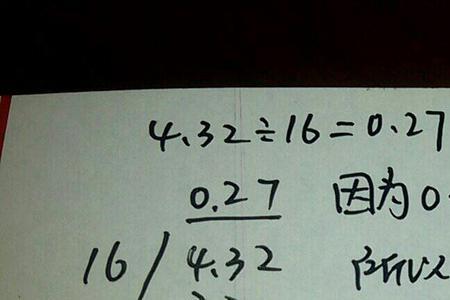 4.32÷16=0.27
0.27 因为0
16/4.32 所以